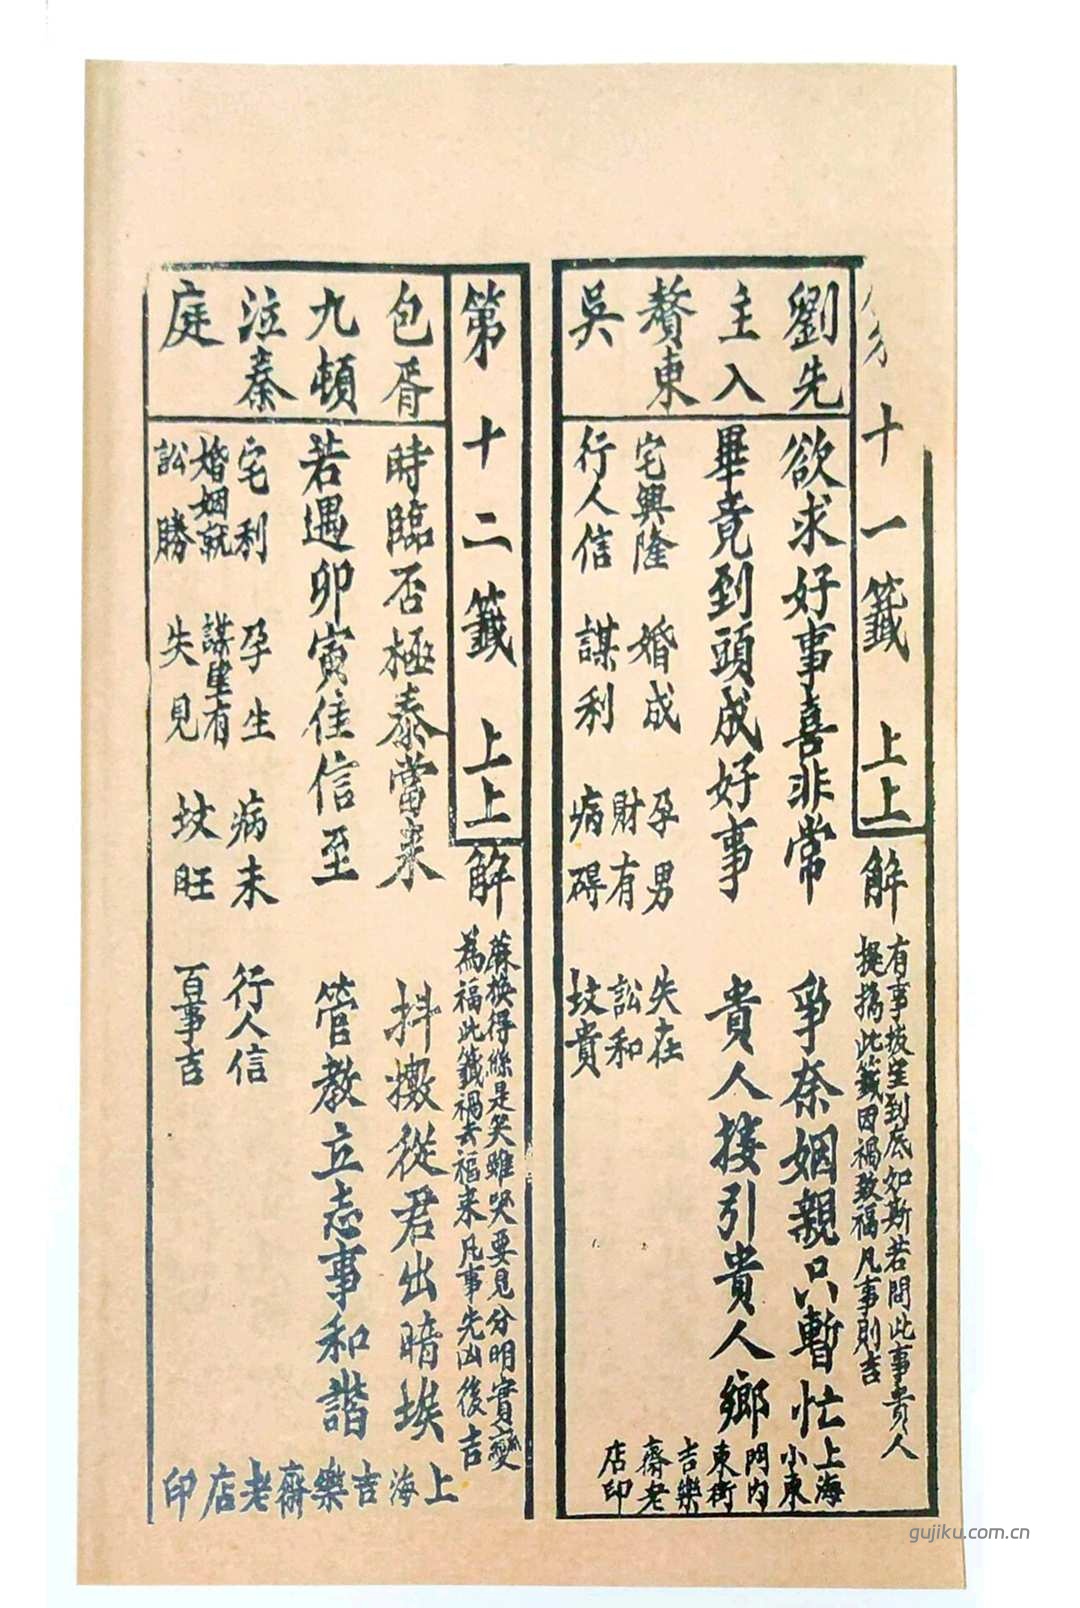 第十一籤 上上
解
有事拔呈到底如斯若問此事貴人
提携此籤因禍致福凡事則吉
劉先
主入
贅東
吳
欲求好事喜非常 爭奈姻親只暫忙
畢竟到頭成好事 貴人接引貴人鄉
宅興隆 婚成 孕男 財有 失在 訟和
行人信 謀利 病碍 坟貴
上海
小東
門內
東街
吉樂
齋老
店印
第十二籤 上上
解
蔴換得絲是笑雖哭要見分明實變
為福此籤禍去福来凡事先凶後吉
包胥
九頓
泣秦
庭
時臨否極泰當来 抖擻從君出暗埃
若遇卯寅佳信至 管教立志事和諧
宅利 孕生 病未 行人信
婚姻就 謀望有
訟勝 失見 坟旺 百事吉
上海吉樂齋老店印
gujiku.com.cn